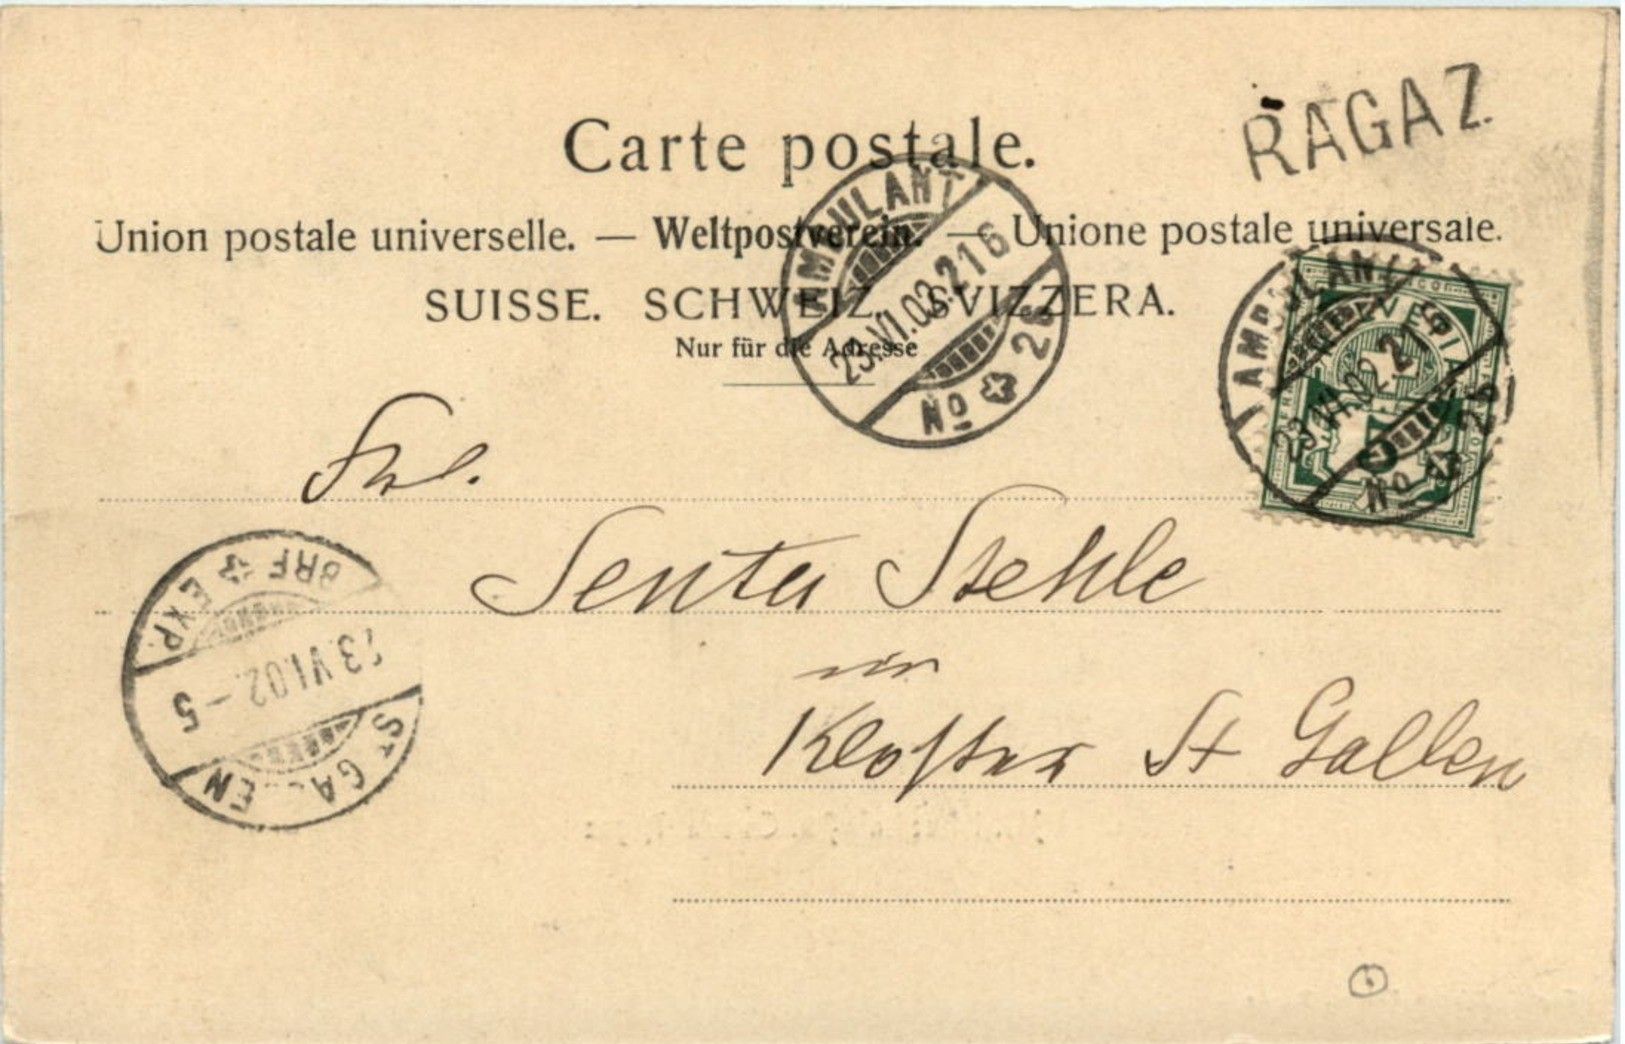 RAGAZ.
Carte postale.
Union postale universelle. — Weltpostverein. — Unione postale universale.
SUISSE. SCHWEIZ. SVIZZERA.
Nur für die Adresse
AMBULANT
23.VI.02.216
No 26
AMBULANT
23.VI.02.21
No 26
HELVETIA
Frl.
Senta Stehle
in
Kloster St Gallen
BRF EXP.
23.VI.02.-5
ST GALLEN